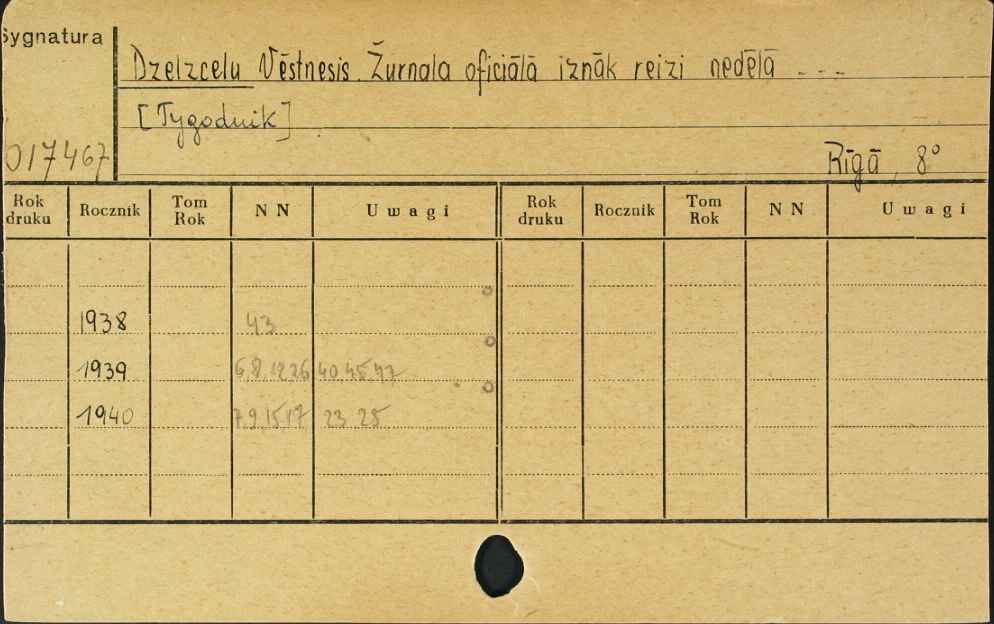 Sygnatura
Dzelzcelu Vēstnesis. Žurnala oficiālā iznāk reizi nedēļā - - -
[Tygodnik]
017467
Rīgā, 8°
Rok druku Rocznik Tom Rok NN Uwagi Rok druku Rocznik Tom Rok NN Uwagi
1938 43
1939 6,8,12,26 40,45,47
1940 7,9,15,17 23 25